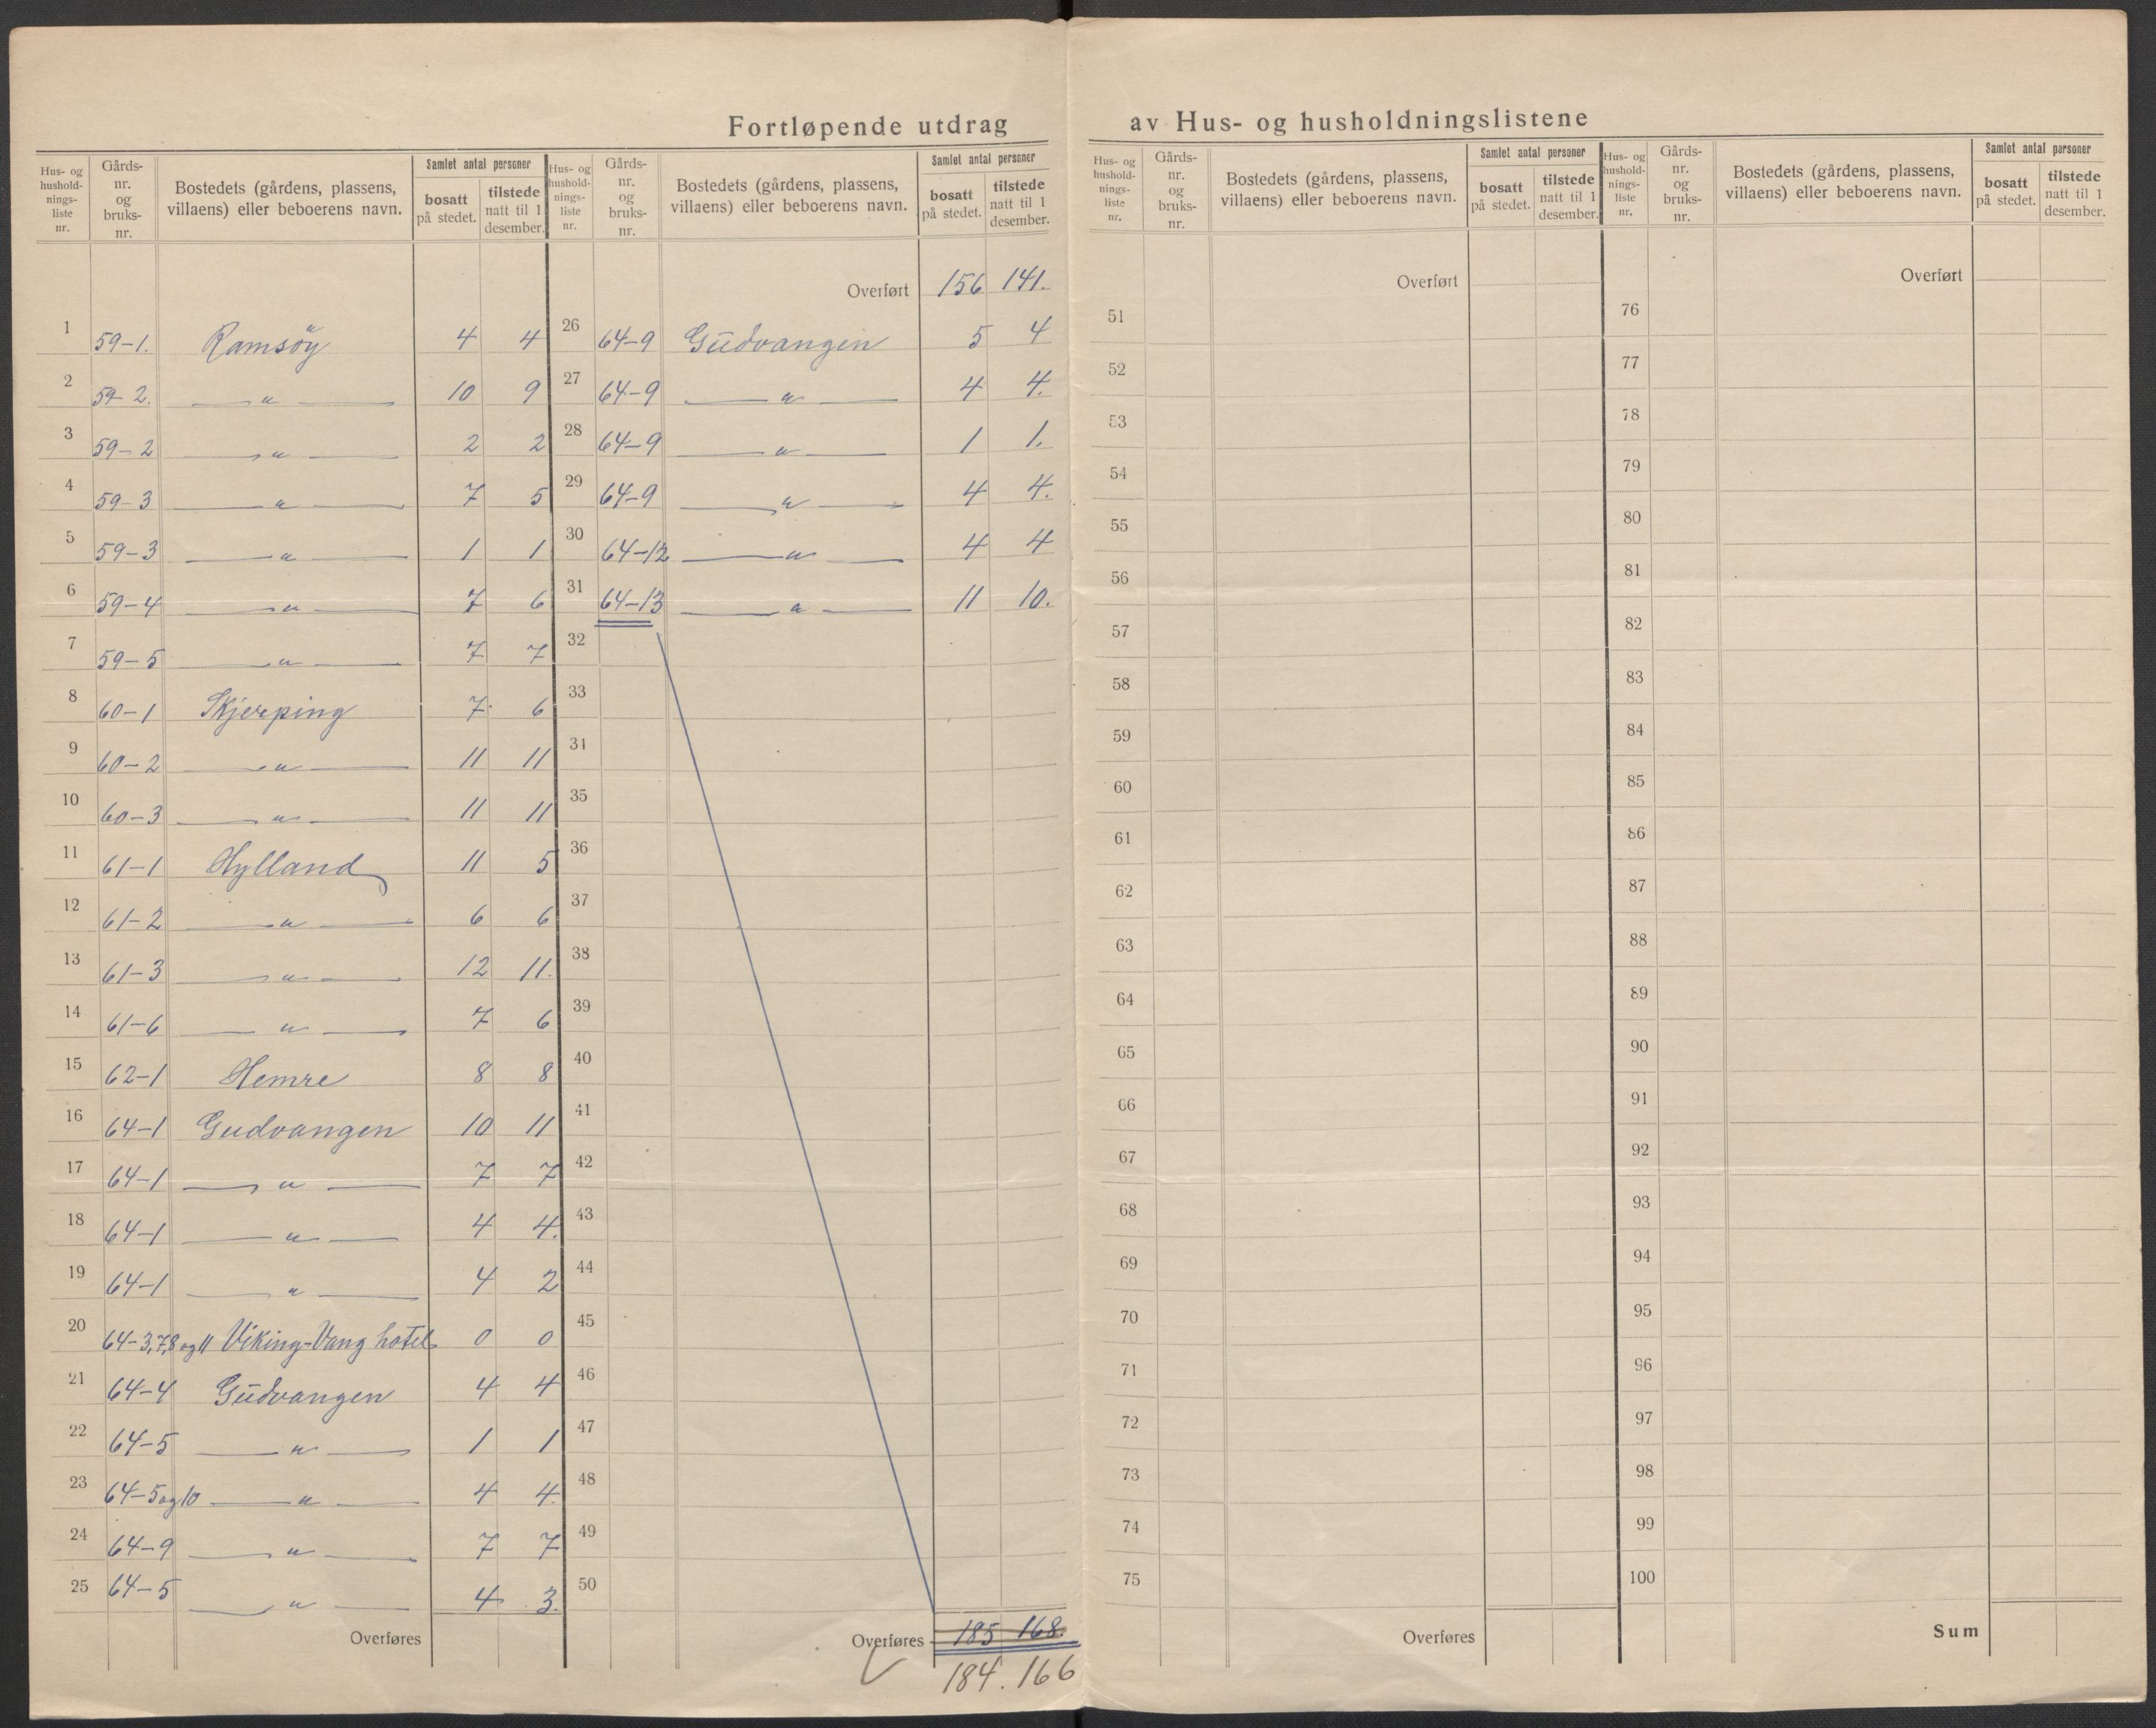 Fortløpende utdrag av Hus- og husholdningslistene
Hus- og hushold-nings-liste nr. Gårds-nr. og bruks-nr. Bostedets (gårdens, plassens, villaens) eller beboerens navn. Samlet antal personer bosatt på stedet. tilstede natt til 1 desember.
1 59-1. Ramsöy 4 4
2 59-2. —„— 10 9
3 59-2 —„— 2 2
4 59-3 —„— 7 5
5 59-3 —„— 1 1
6 59-4 —„— 7 6
7 59-5 —„— 7 7
8 60-1 Skjerping 7. 6
9 60-2 —„— 11 11
10 60-3 —„— 11 11
11 61-1 Hylland 11 5
12 61-2 —„— 6 6
13 61-3 —„— 12 11.
14 61-6 —„— 7 6
15 62-1 Hemre 8 8
16 64-1 Gudvangen 10 11
17 64-1 —„— 7 7
18 64-1 —„— 4 4.
19 64-1 —„— 4 2
20 64-3,7,8 og 11 Viking-Vang hotel 0 0
21 64-4 Gudvangen 4 4
22 64-5 —„— 1 1
23 64-5 og 10 —„— 4 4.
24 64-9 —„— 7 7
25 64-5 —„— 4 3.
Overføres
Hus- og hushold-nings-liste nr. Gårds-nr. og bruks-nr. Bostedets (gårdens, plassens, villaens) eller beboerens navn. Samlet antal personer bosatt på stedet. tilstede natt til 1 desember.
Overført 156 141.
26 64-9 Gudvangen 5 4
27 64-9 —„— 4 4.
28 64-9 —„— 1 1.
29 64-9 —„— 4 4.
30 64-12 —„— 4 4
31 64-13 —„— 11 10.
32
33
31
35
36
37
38
39
40
41
42
43
44
45
46
47
48
49
50
Overføres 185 168.
184. 166
Hus- og hushold-nings-liste nr. Gårds-nr. og bruks-nr. Bostedets (gårdens, plassens, villaens) eller beboerens navn. Samlet antal personer bosatt på stedet. tilstede natt til 1 desember.
Overført
51
52
53
54
55
56
57
58
59
60
61
62
63
64
65
66
67
68
69
70
71
72
73
74
75
Overføres
Hus- og hushold-nings-liste nr. Gårds-nr. og bruks-nr. Bostedets (gårdens, plassens, villaens) eller beboerens navn. Samlet antal personer bosatt på stedet. tilstede natt til 1 desember.
Overført
76
77
78
79
80
81
82
83
84
85
86
87
88
89
90
91
92
93
94
95
96
97
98
99
100
Sum